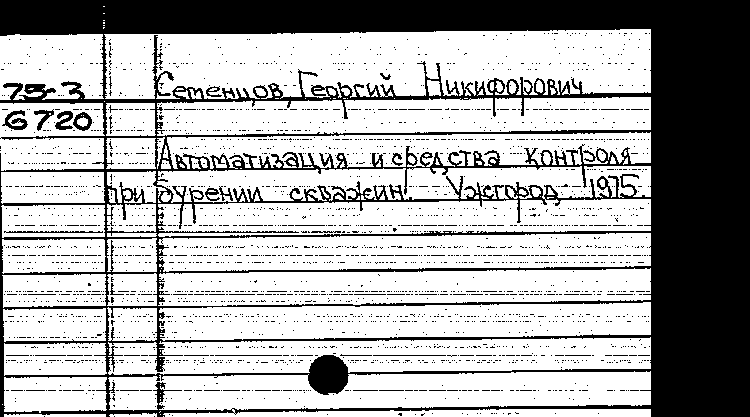 75-3 Сетенцов, Георгий Никифорович
6720
Автоматизация и средства контроля
при бурении скважин. Ужгород. 1975.